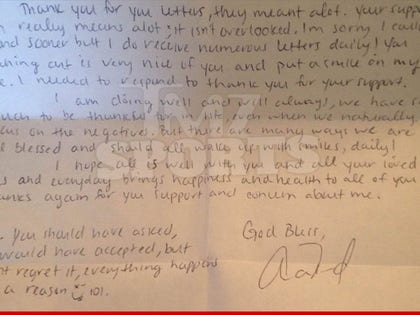 Thank you for you letters, they meant alot. Your suppo
n really means alot; it isn't overlooked. I'm sorry I coul
nd sooner but I do receive numerous letters daily! You
hing out is very nice of you and put a smile on my
e. I needed to respond to thank you for your support.
I am doing well and will always, we have
uch to be thankful for in life, even when we naturally
cus on the negatives. But there are many ways we are
l blessed and should all wake up with smiles, daily!
I hope all is well with you and all your loved
s and everyday brings happiness and health to all of you
anks again for you support and concern about me.
God Bless,
. You should have asked,
would have accepted, but
nt regret it, everything happens
a reason lol.